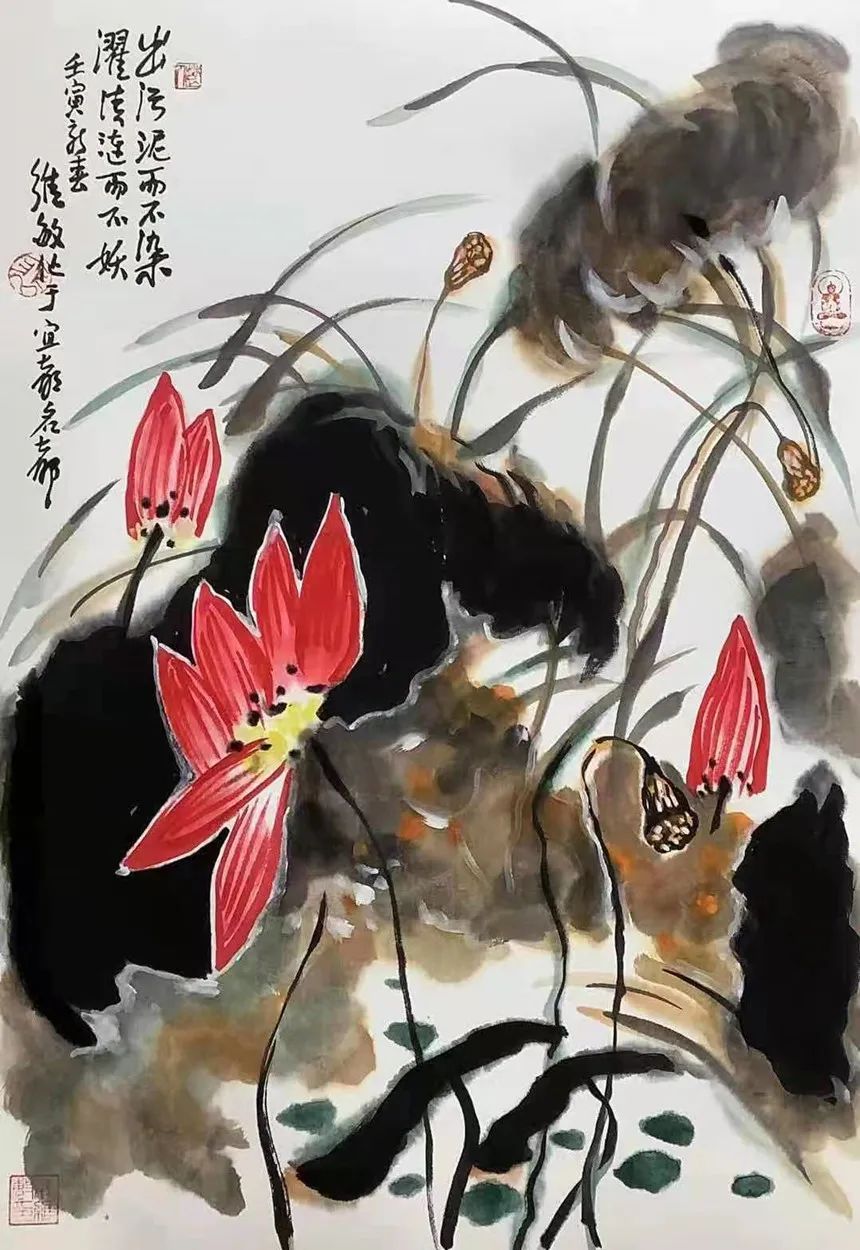 出污泥而不染
濯清涟而不妖
壬寅新春
维敏作于宜都名都